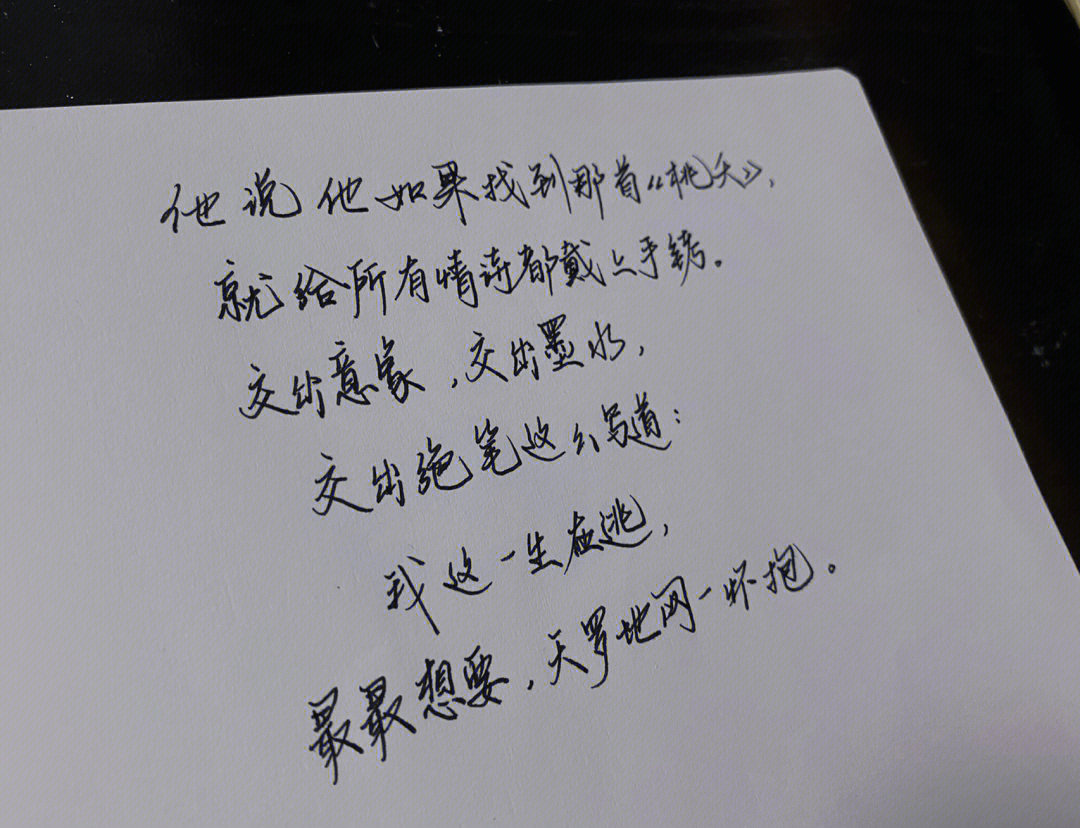 他说他如果找到那首《桃夭》，
就给所有情诗都戴上手铐。
交出意象，交出墨水，
交出绝笔这么写道：
我这一生在逃，
最最想要，天罗地网一怀抱。